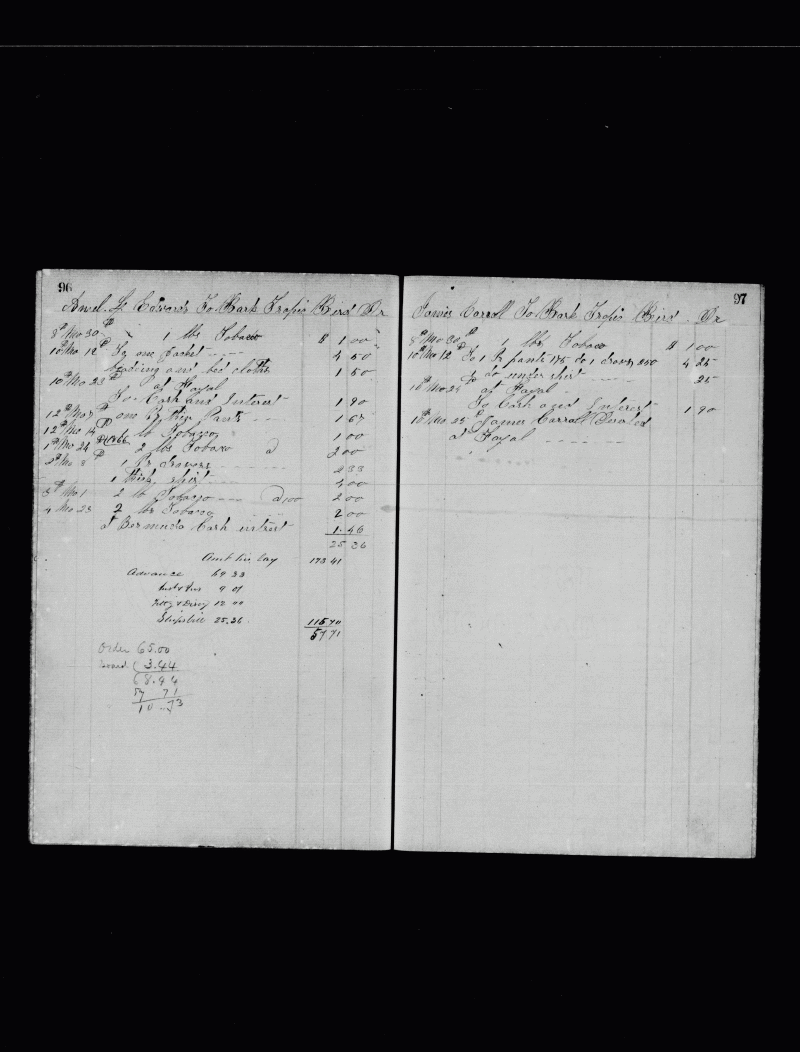 96
Edwards To Bark Tropic Bird Dr
8th Mo 30th 1 lbs Tobacco $ 1 00
10th Mo 12th To one Jacket 4 50
bedding and bed cloths 1 50
10th Mo 23th at Fayal
To Cash and Interest 1 90
12th Mo 8th one Pr thin Pants 1 67
12th Mo 14th lb Tobacco 1 00
1th Mo 24 2 lbs Tobacco 2 00
2th Mo 8th 1 Pr drawers 33
1 thick shirt 2 00
3th Mo 1 2 lb Tobacco 100 2 00
4 Mo 23 2 lbs Tobacco 2 00
at Bermuda Cash intrest 1.46
25 36
Amt his lay 173 41
Advance 69 33
9 01
12 00
Ships bill 25.36 115 70
57 71
Order 65.00
3.44
68.44
57 71
10 73
97
James Carroll To Bark Tropic Bird Dr
8th Mo 30th 1 lbs Tobacco $ 1 00
10th Mo 12th To 1 Pr pants 175 To 1 drawers 250 4 25
To do under shirt 25
10th Mo 23 at Fayal
To Cash and Interest 1 90
10th Mo 25th James Carroll Deserted
at Fayal